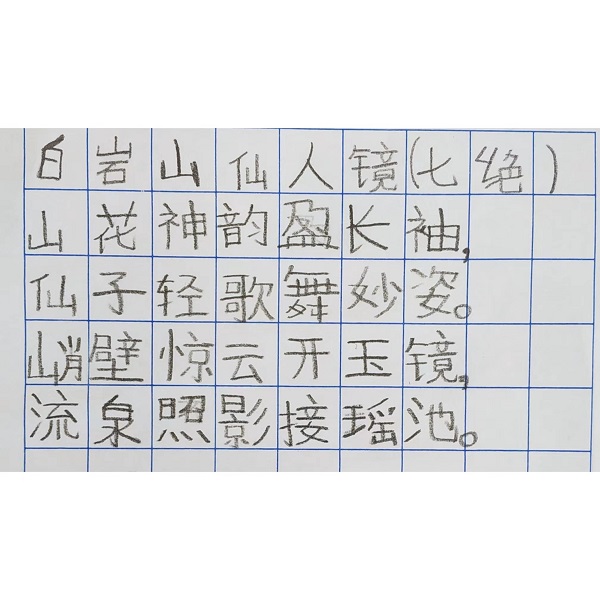 白岩山仙人镜(七绝)
山花神韵盈长袖,
仙子轻歌舞妙姿。
峭壁惊云开玉镜,
流泉照影接瑶池。